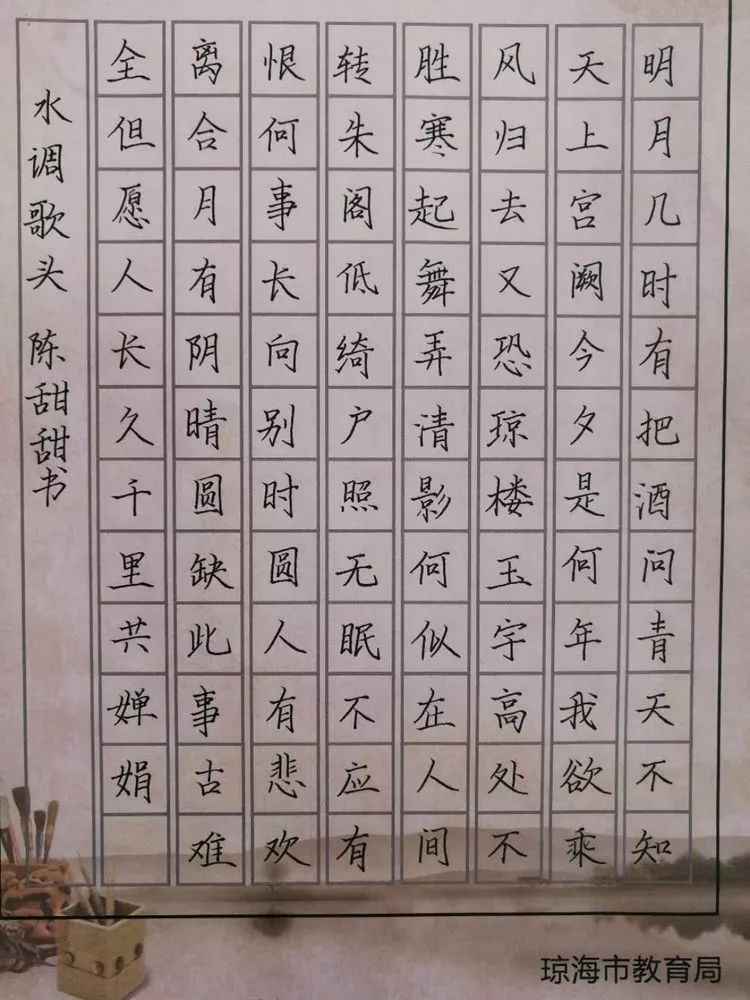 明月几时有把酒问青天不知
天上宫阙今夕是何年我欲乘
风归去又恐琼楼玉宇高处不
胜寒起舞弄清影何似在人间
转朱阁低绮户照无眠不应有
恨何事长向别时圆人有悲欢
离合月有阴晴圆缺此事古难
全但愿人长久千里共婵娟
水调歌头 陈甜甜书
琼海市教育局